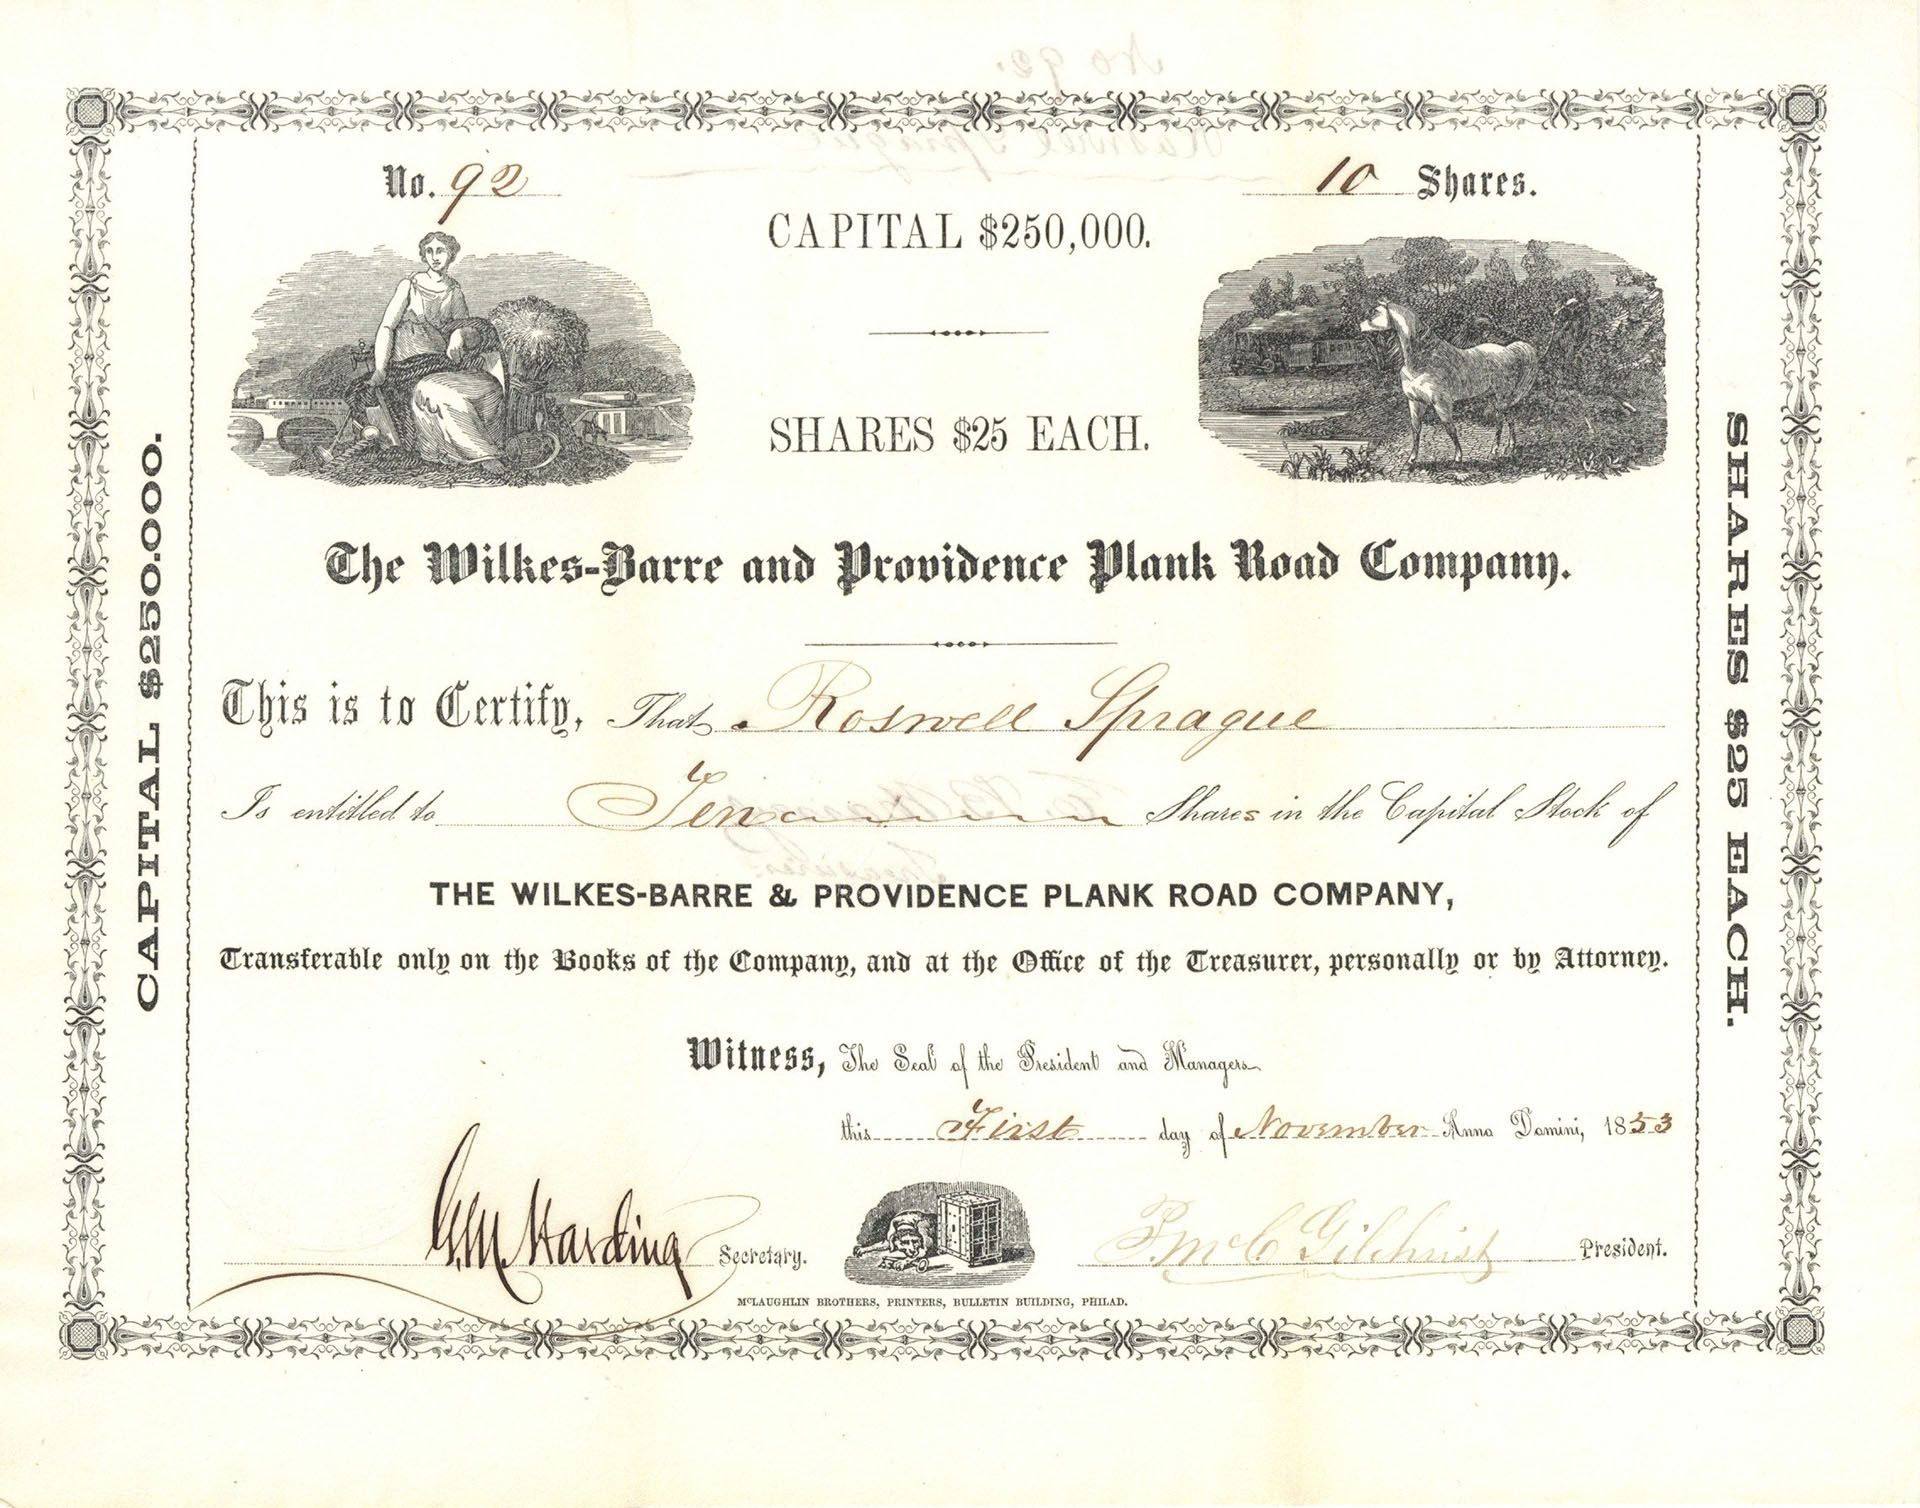 No. 92
10 Shares.
CAPITAL $250,000.
SHARES $25 EACH.
CAPITAL $250.000.
SHARES $25 EACH.
The Wilkes-Barre and Providence Plank Road Company.
This is to Certify, That Roswell Sprague
Is entitled to Ten Shares in the Capital Stock of
THE WILKES-BARRE & PROVIDENCE PLANK ROAD COMPANY,
Transferable only on the Books of the Company, and at the Office of the Treasurer, personally or by Attorney.
Witness, The Seal of the President and Managers
this First day of November Anno Domini, 1853
G.M. Harding Secretary.
P. McC Gilchrist President.
McLAUGHLIN BROTHERS, PRINTERS, BULLETIN BUILDING, PHILAD.